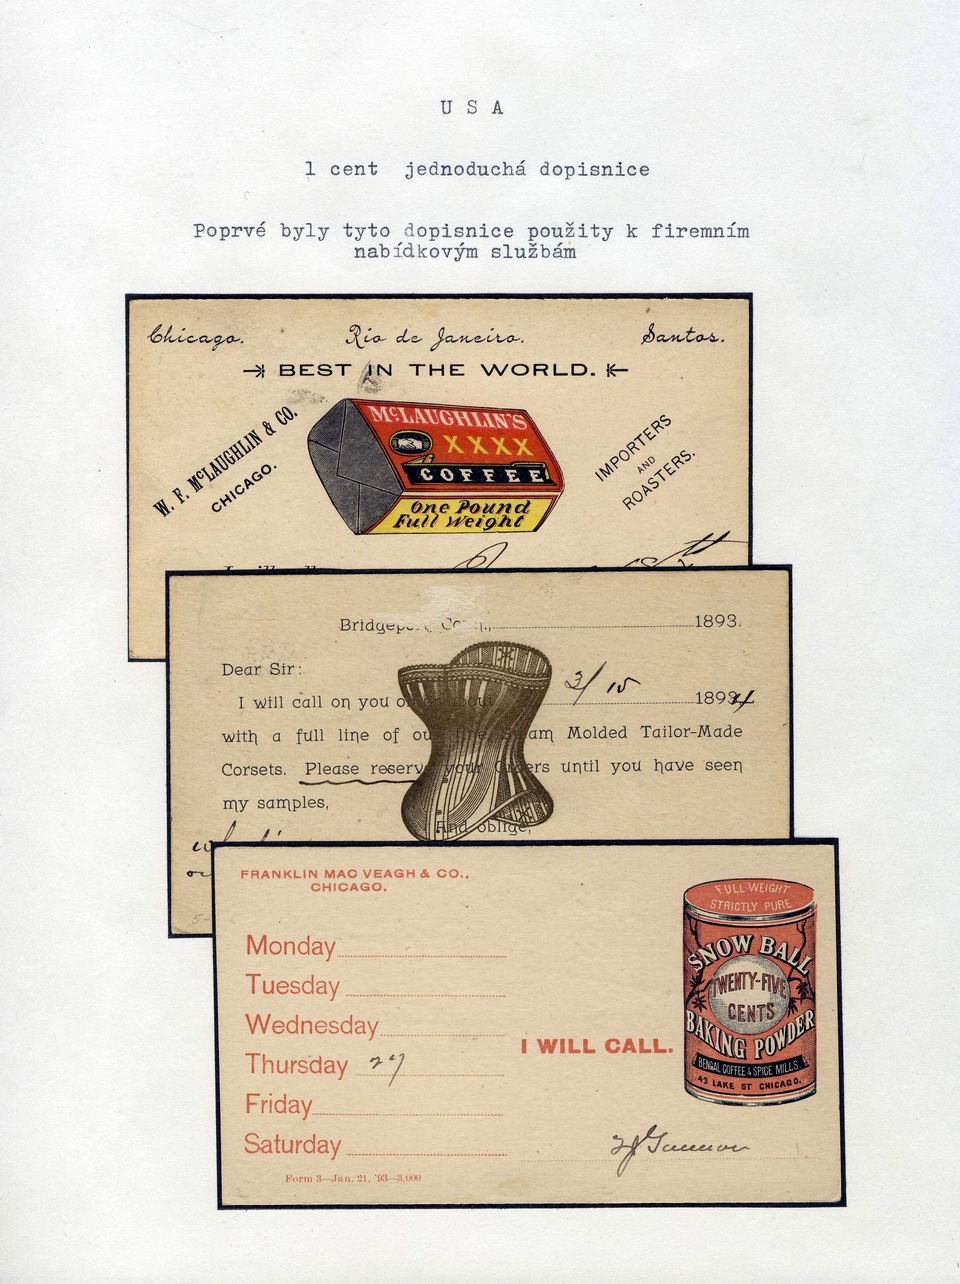 U S A
1 cent jednoduchá dopisnice
Poprvé byly tyto dopisnice použity k firemním
nabídkovým službám
Chicago. Rio de Janeiro. Santos.
BEST IN THE WORLD.
W. F. McLAUGHLIN & CO.
CHICAGO.
McLAUGHLIN'S
XXXX
COFFEE
One Pound
Full Weight
IMPORTERS
AND
ROASTERS.
Bridgeport, Conn., 1893.
Dear Sir:
I will call on you on or about 3/15 1894
with a full line of our fine Steam Molded Tailor-Made
Corsets. Please reserve your Orders until you have seen
my samples,
And oblige,
FRANKLIN MAC VEAGH & CO.,
CHICAGO.
Monday
Tuesday
Wednesday
Thursday 27
Friday
Saturday
I WILL CALL.
FULL WEIGHT
STRICTLY PURE
SNOW BALL
TWENTY-FIVE
CENTS
BAKING POWDER
BENGAL COFFEE & SPICE MILLS.
43 LAKE ST CHICAGO.
Form 3—Jan. 21, '93—3,000